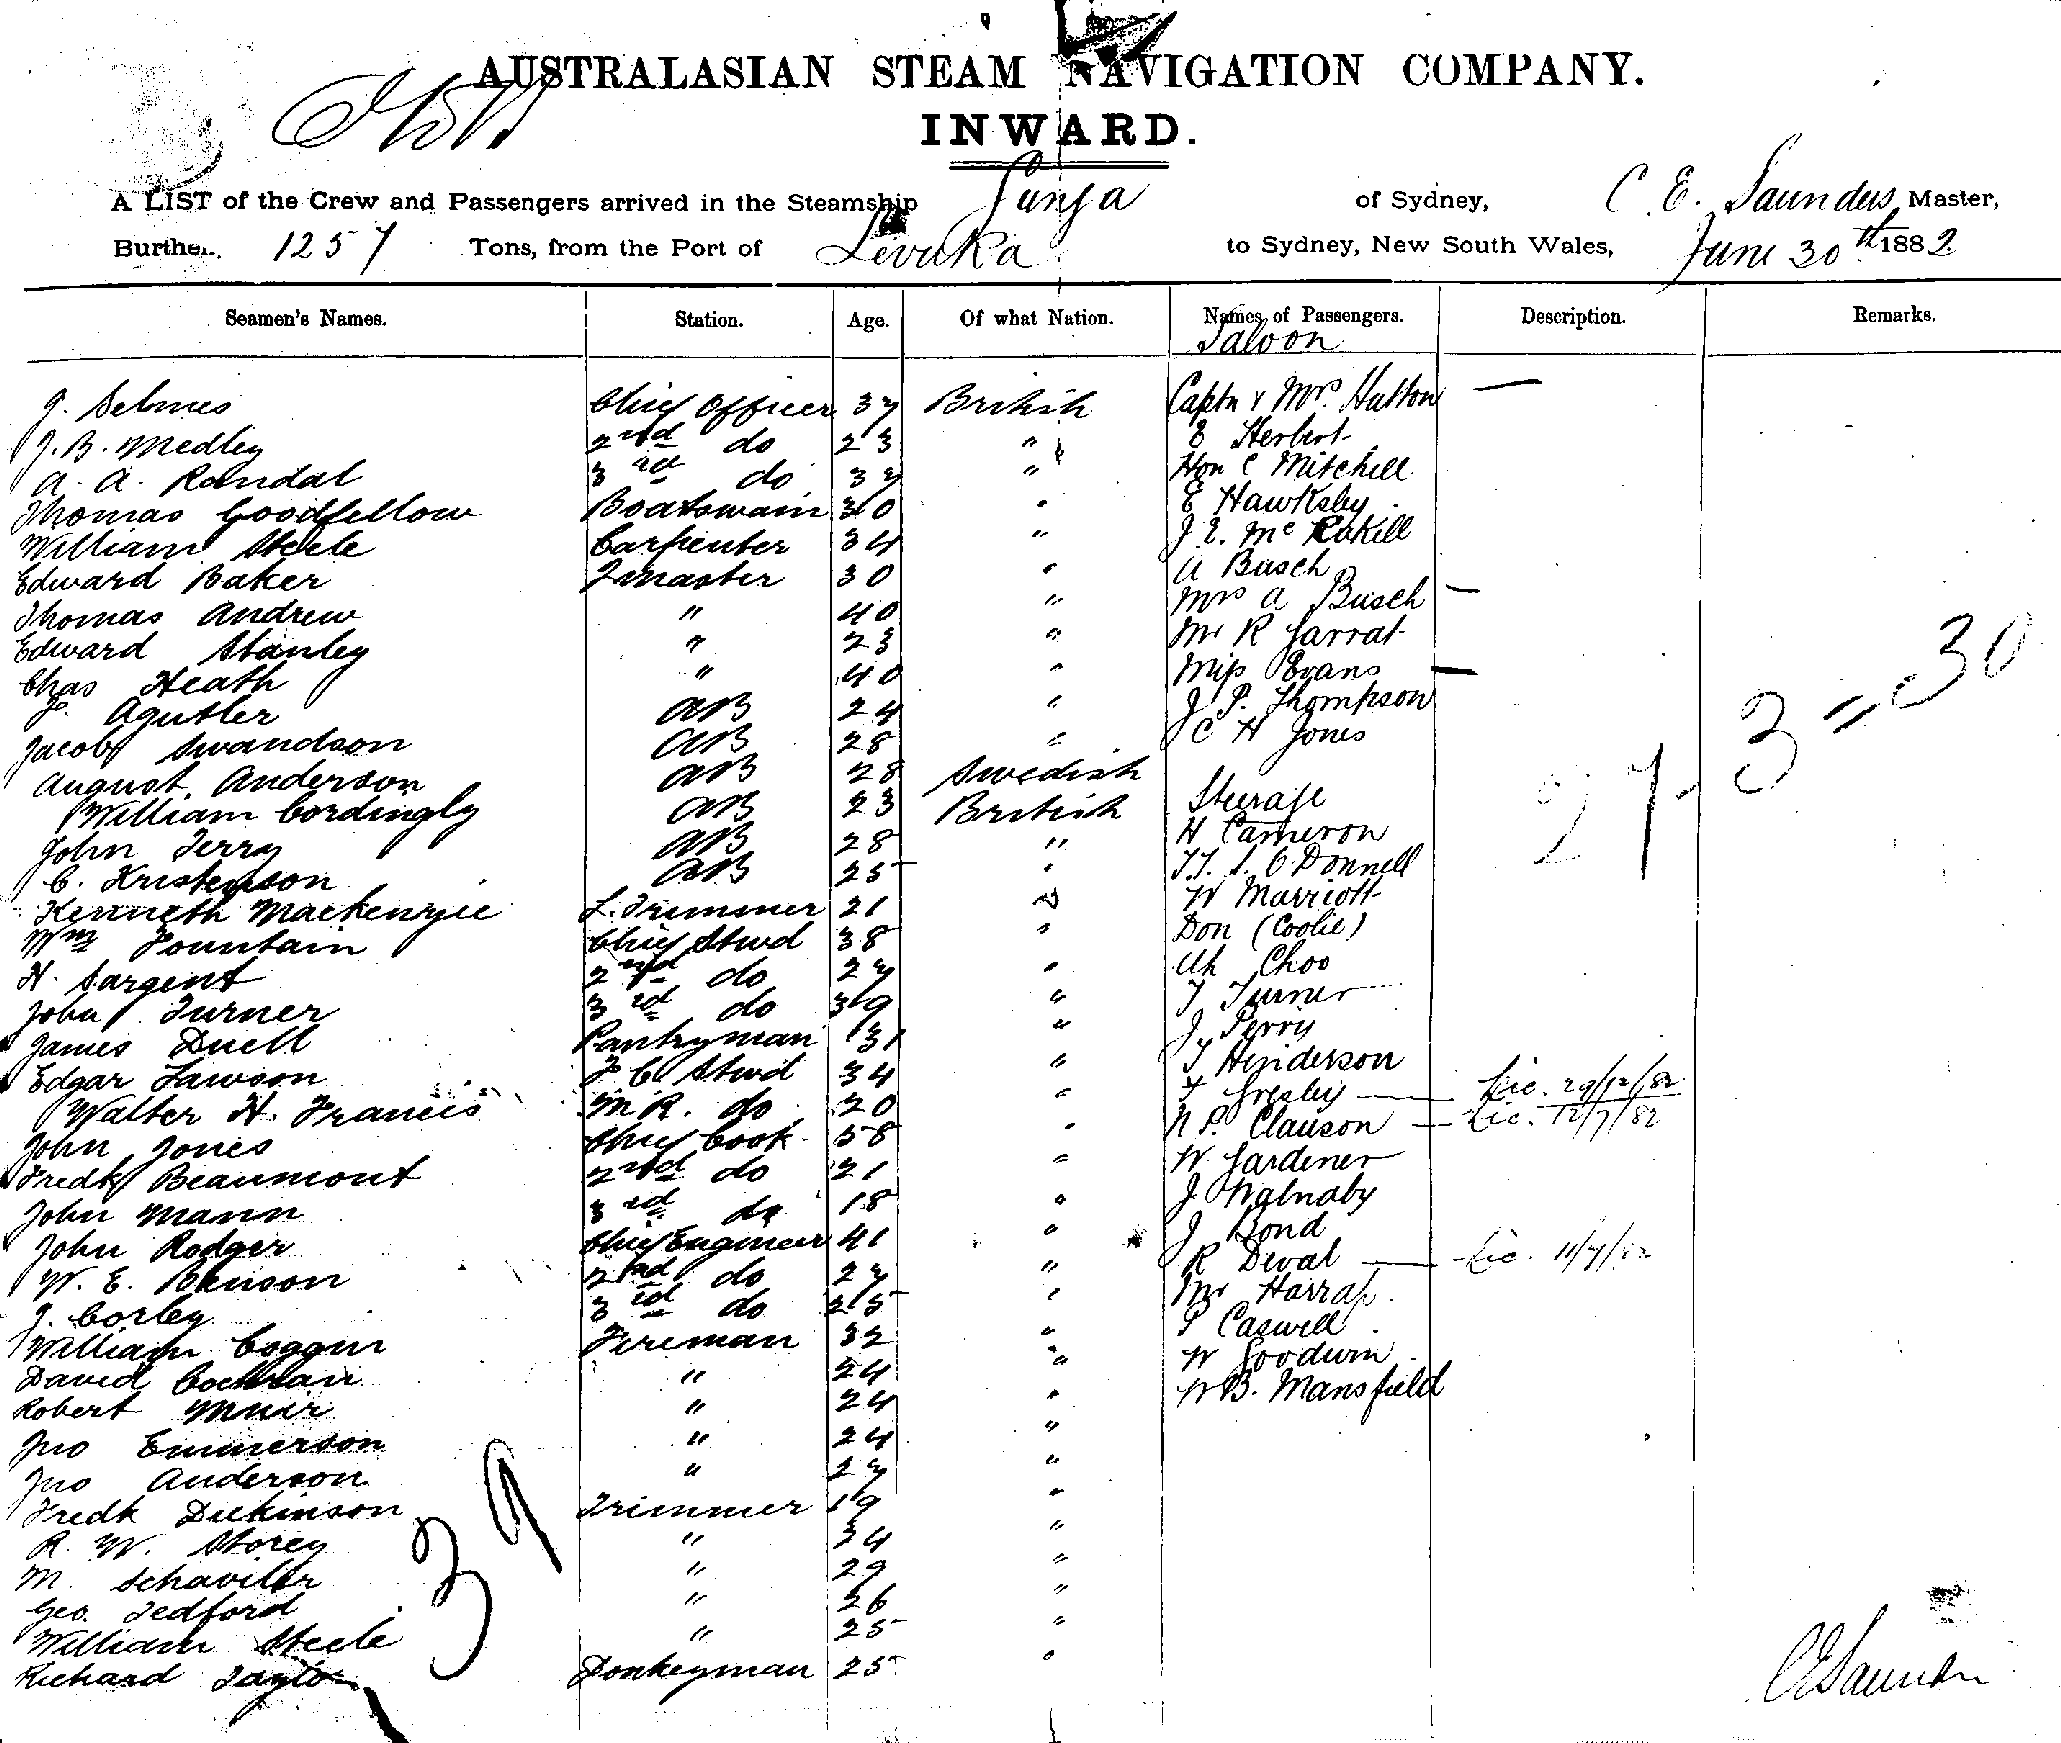 AUSTRALASIAN STEAM NAVIGATION COMPANY.
INWARD.
A LIST of the Crew and Passengers arrived in the Steamship Gunga of Sydney, C. E. Saunders Master,
Burthen 1257 Tons, from the Port of Levuka to Sydney, New South Wales, June 30th 1882
Seamen's Names. Station. Age. Of what Nation. Names of Passengers. Description. Remarks.
Saloon
J. Selmes Chief Officer 37 British Captn & Mrs. Hutton —
J. B. Medley 2nd do 23 " E Herbert
A. A. Randal 3rd do 37 " Hon C Mitchell
Thomas Goodfellow Boatswain 30 " E Hawksley
William Steele Carpenter 34 " J. E. Mc
Edward Baker Lmaster 30 " A Busch
Thomas Andrew " 40 " Mrs A Busch —
Edward Stanley " 23 " Mr R Garrat
Chas Heath " 40 " Miss Evans —
J. Agutter AB 24 " J P. Thompson
Jacob Swandson AB 28 " C H Jones
August. Anderson AB 28 Swedish
William Cordingly AB 23 British Steerage
John Terry AB 28 " H Cameron
C. Kristenson AB 25 " O'Donnell
Kenneth Mackenzie L. Trimmer 21 " W Marriott
Wm Fountain Chief Stwd 38 " Don (Coolie)
H. Sargent 2nd do 27 " Ah Choo
John Turner 3rd do 39 " T Turner
James Duell Pantryman 31 " J Perry
Edgar Lawson F C Stwd 34 " T Henderson
Walter H. Francis M R. do 20 " F Gresley — Lic. 29/12/82
John Jones Chief Cook 58 " N P. Clauson — Lic. 12/7/82
Fredk Beaumont 2nd do 21 " W. Gardener
John Mann 3rd do 18 " J Walnaby
John Rodger Chief Engineer 41 " J Bond
W. E. Benson 2nd do 27 " R Deval — Lic. 11/7/82
J. Corley 3rd do 25 " Mr Harrap.
William Coggur Fireman 32 " P Caswell
David Cochran " 24 " W Goodwin
Robert Muir " 24 " W B. Mansfield
Jno Emmerson " 24 "
Jno Anderson " 27 "
Fredk Dickinson Trimmer 19 "
R. W. Storey " 34 "
M. " 29 "
Geo. Tedford " 26 "
William Steele " 25 "
Richard Taylor Donkeyman 25 "
39
27 - 3 = 30
C E Saunders